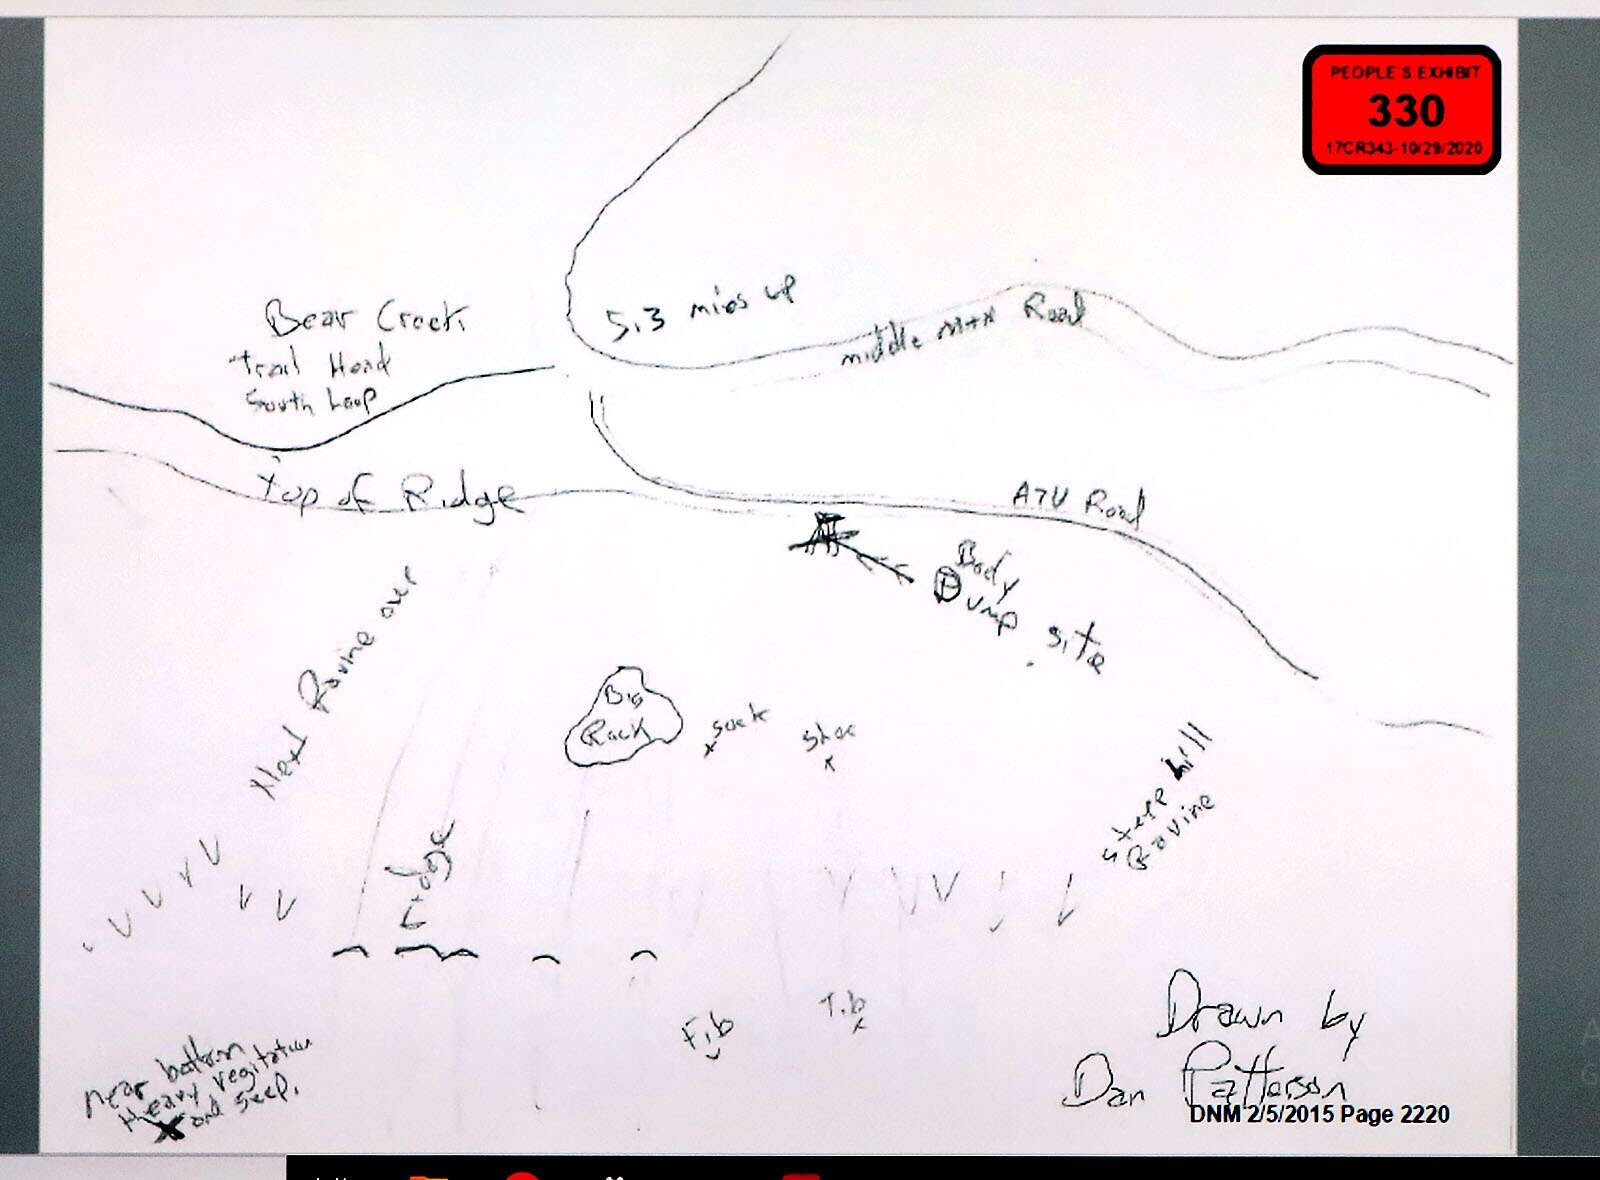 PEOPLE S EXHIBIT
330
17CR343-10/29/2020
5.3 miles up
Bear Creek
Trail Head
South Loop
middle Mtn Road
Top of Ridge
ATV Road
Body
Dump site
Next Ravine over
Big
Rock
sock
shoe
steep hill
Ravine
ridge
Fib
Tib
near bottom
Heavy vegitation
and seep.
Drawn by
Dan Patterson
DNM 2/5/2015 Page 2220